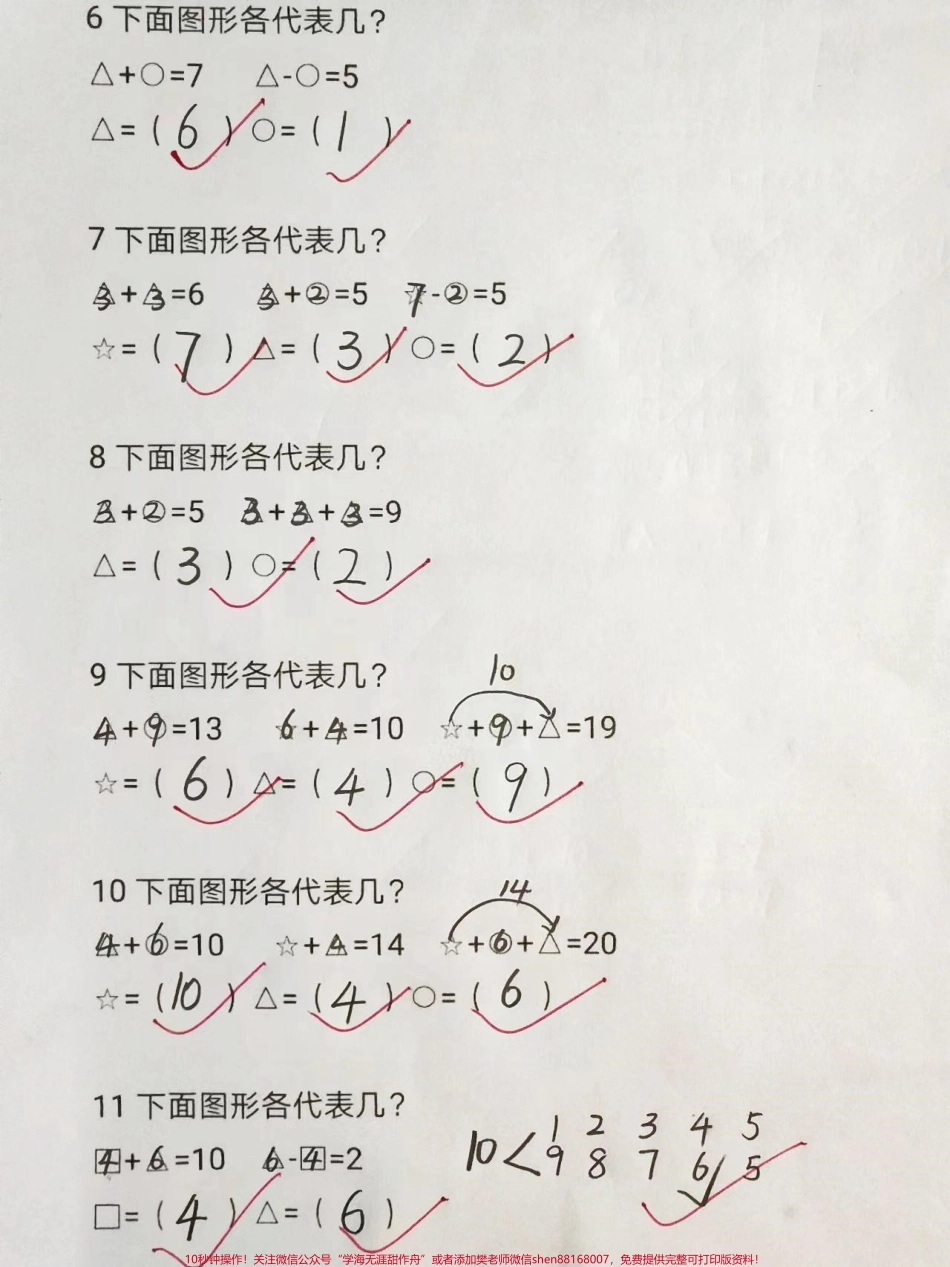 6 下面图形各代表几？
△+○=7 △-○=5
△=（6）○=（1）
7 下面图形各代表几？
3+3=6 3+②=5 7-②=5
☆=（7）△=（3）○=（2）
8 下面图形各代表几？
3+②=5 3+3+3=9
△=（3）○=（2）
10
9 下面图形各代表几？
4+9=13 6+4=10 ☆+9+△=19
☆=（6）△=（4）○=（9）
14
10 下面图形各代表几？
4+6=10 ☆+4=14 ☆+6+△=20
☆=（10）△=（4）○=（6）
11 下面图形各代表几？
4+6=10 6-4=2
10< 1 2 3 4 5
9 8 7 6 5
□=（4）△=（6）
10秒钟操作！关注微信公众号“学海无涯甜作舟”或者添加樊老师微信shen88168007，免费提供完整可打印版资料！